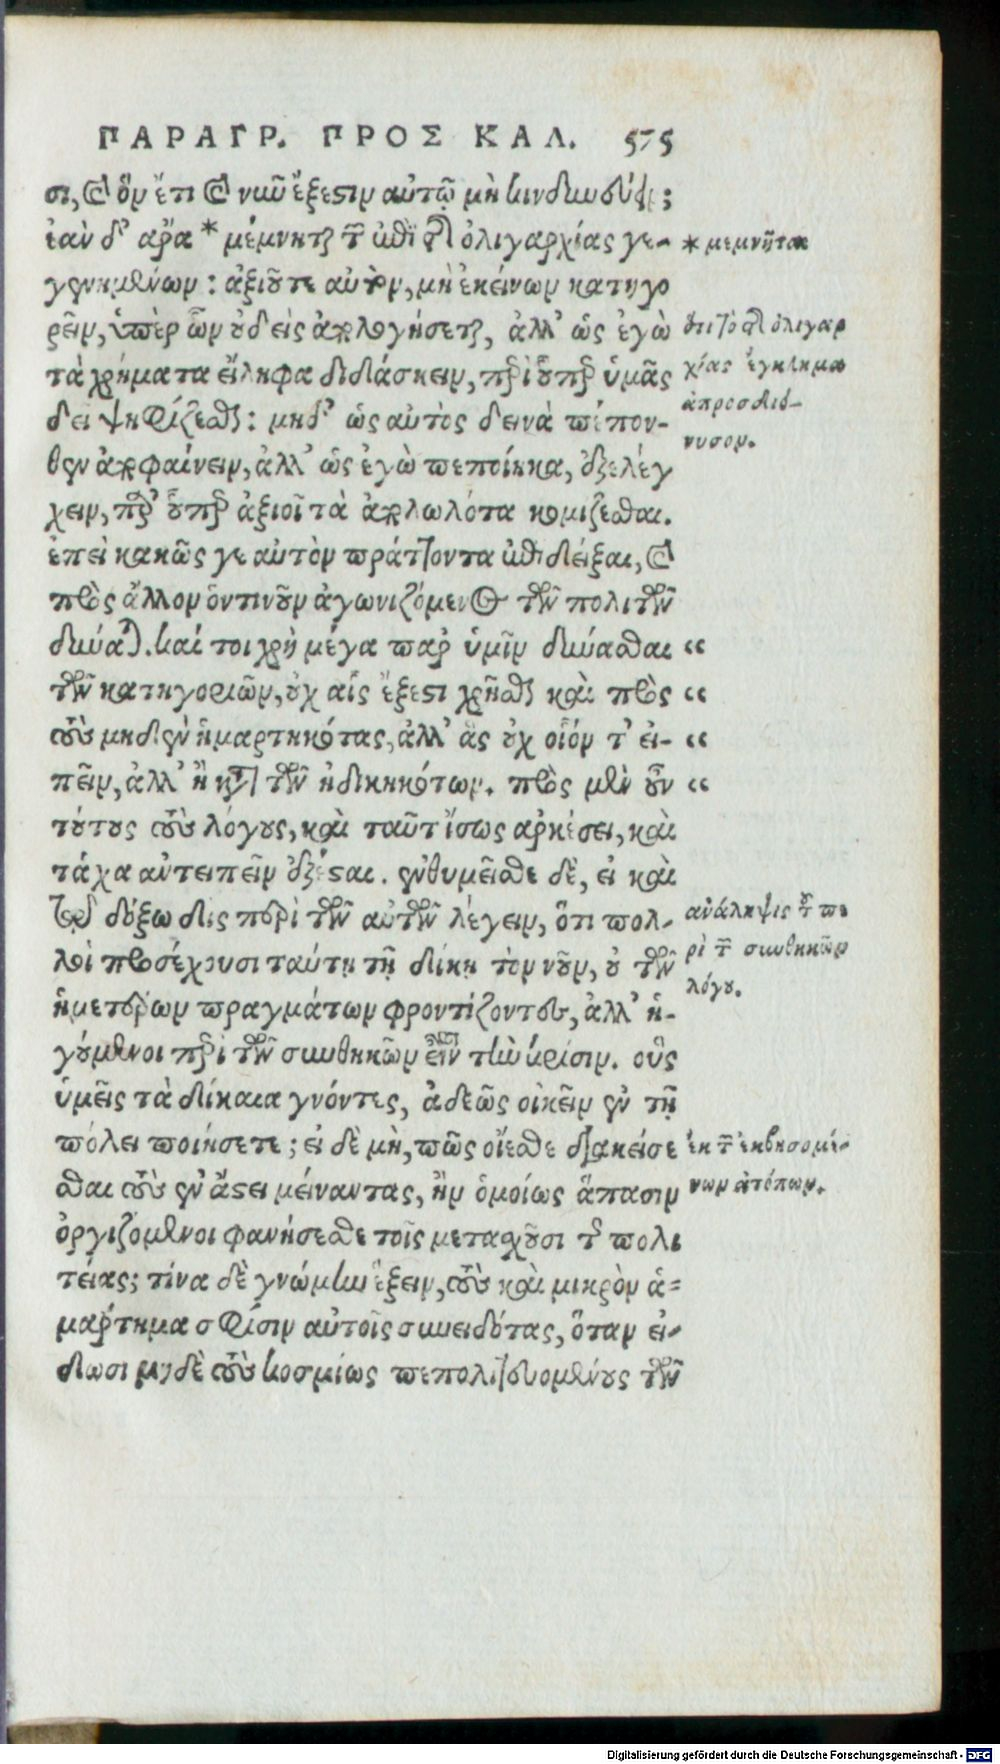 ΠΑΡΑΓΡ. ΠΡΟΣ ΚΑΛ. 575
σι, καὶ ὃν ἔτι καὶ νῦν ἔξεστιν αὐτῷ μὴ κινδυνεύειν;
ἐὰν δ' ἄρα * μέμνηται τῶν ἐπὶ τῆς ὀλιγαρχίας γε-
γενημένων: ἀξιοῦτε αὐτὸν, μὴ ἐκείνων κατηγο
ρεῖν, ὑπὲρ ὧν οὐδεὶς ἀπολογήσεται, ἀλλ' ὡς ἐγὼ
τὰ χρήματα εἴληφα διδάσκειν, περὶ οὗπερ ὑμᾶς
δεῖ ψηφίζεσθαι: μηδ' ὡς αὐτὸς δεινὰ πέπον-
θεν ἀποφαίνειν, ἀλλ' ὡς ἐγὼ πεποίηκα, ἐξελέγ
χειν, παρ' οὗπερ ἀξιοῖ τὰ ἀπολωλότα κομίζεσθαι.
ἐπεὶ κακῶς γε αὐτὸν πράττοντα ἐπιδεῖξαι, καὶ
πρὸς ἄλλον ὁντινοῦν ἀγωνιζόμενος τῶν πολιτῶν
δύναται. καί τοι χρὴ μέγα παρ' ὑμῖν δύνασθαι “
τῶν κατηγοριῶν, οὐχ αἷς ἔξεστι χρῆσθαι καὶ πρὸς “
τοὺς μηδὲν ἡμαρτηκότας, ἀλλ' ἃς οὐχ οἷόν τ' εἰ- “
πεῖν, ἀλλ' ἢ κατὰ τῶν ἠδικηκότων. πρὸς μὲν οὖν “
τούτους τοὺς λόγους, καὶ ταῦτ' ἴσως ἀρκέσει, καὶ
τάχα ἀντειπεῖν ἐξέσται. ἐνθυμεῖσθε δὲ, εἰ καὶ
τῳ δόξω δὶς περὶ τῶν αὐτῶν λέγειν, ὅτι πολ-
λοὶ προσέχουσι ταύτῃ τῇ δίκῃ τὸν νοῦν, οὐ τῶν
ἡμετέρων πραγμάτων φροντίζοντες, ἀλλ' ἡ-
γούμενοι περὶ τῶν συνθηκῶν εἶναι τὴν κρίσιν. οὓς
ὑμεῖς τὰ δίκαια γνόντες, ἀδεῶς οἰκεῖν ἐν τῇ
πόλει ποιήσετε; εἰ δὲ μὴ, πῶς οἴεσθε διακείσε
σθαι τοὺς ἐν ἄστει μείναντας, ἢν ὁμοίως ἅπασιν
ὀργιζόμενοι φανήσεσθε τοῖς μετασχοῦσι τῆς πολι
τείας; τίνα δὲ γνώμην ἕξειν, τοὺς καὶ μικρὸν ἁ-
μάρτημα σφίσιν αὐτοῖς συνειδότας, ὅταν εἰ-
δῶσι μηδὲ τοὺς κοσμίως πεπολιτευομένους τῶν
* μεμνῆται
ὅτι τὸ τῆς ὀλιγαρ
χίας ἔγκλημα
ἀπροσδιό-
νυσον.
ἀνάληψις τοῦ πε
ρὶ τῶν συνθηκῶν
λόγου.
ἐκ τῶν ἐκβησομέ-
νων ἀτόπων.
Digitalisierung gefördert durch die Deutsche Forschungsgemeinschaft - DFG